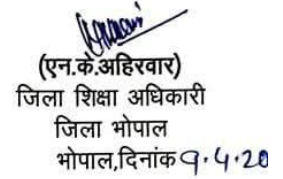 (एन.के.अहिरवार)
जिला शिक्षा अधिकारी
जिला भोपाल
भोपाल,दिनांक 9.4.20